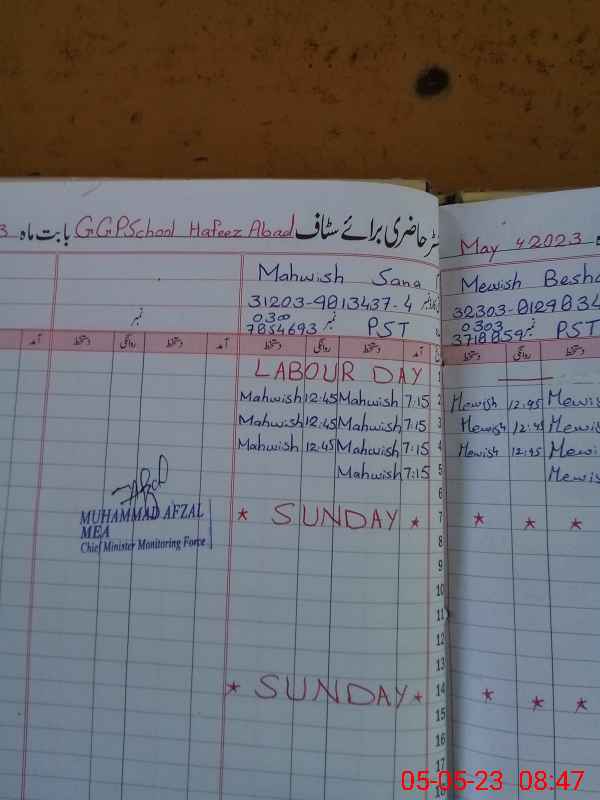 ٹر حاضری برائے سٹاف G.G.P.School Hafeez Abad بابت ماہ 3
May 2023
Mahwish Sana
31203-9013437-4
0300
7854693 نمبر PST
نمبر
Mewish
0303 نمبر PST
آمد دستخط روانگی دستخط آمد دستخط روانگی دستخط آمد
دستخط روانگی دستخط
LABOUR DAY 1
Mahwish 12:45 Mahwish 7:15 2
Mewish 12:45
Mahwish 12:45 Mahwish 7:15 3
Mewish
Mahwish 12:45 Mahwish 7:15 4
Mewish 12:45
Mahwish 7:15 5
6
* SUNDAY * 7
* * *
8
9
10
11
12
13
* SUNDAY * 14
* * *
15
16
17
18
MUHAMMAD AFZAL
MEA
Chief Minister Monitoring Force
05-05-23 08:47